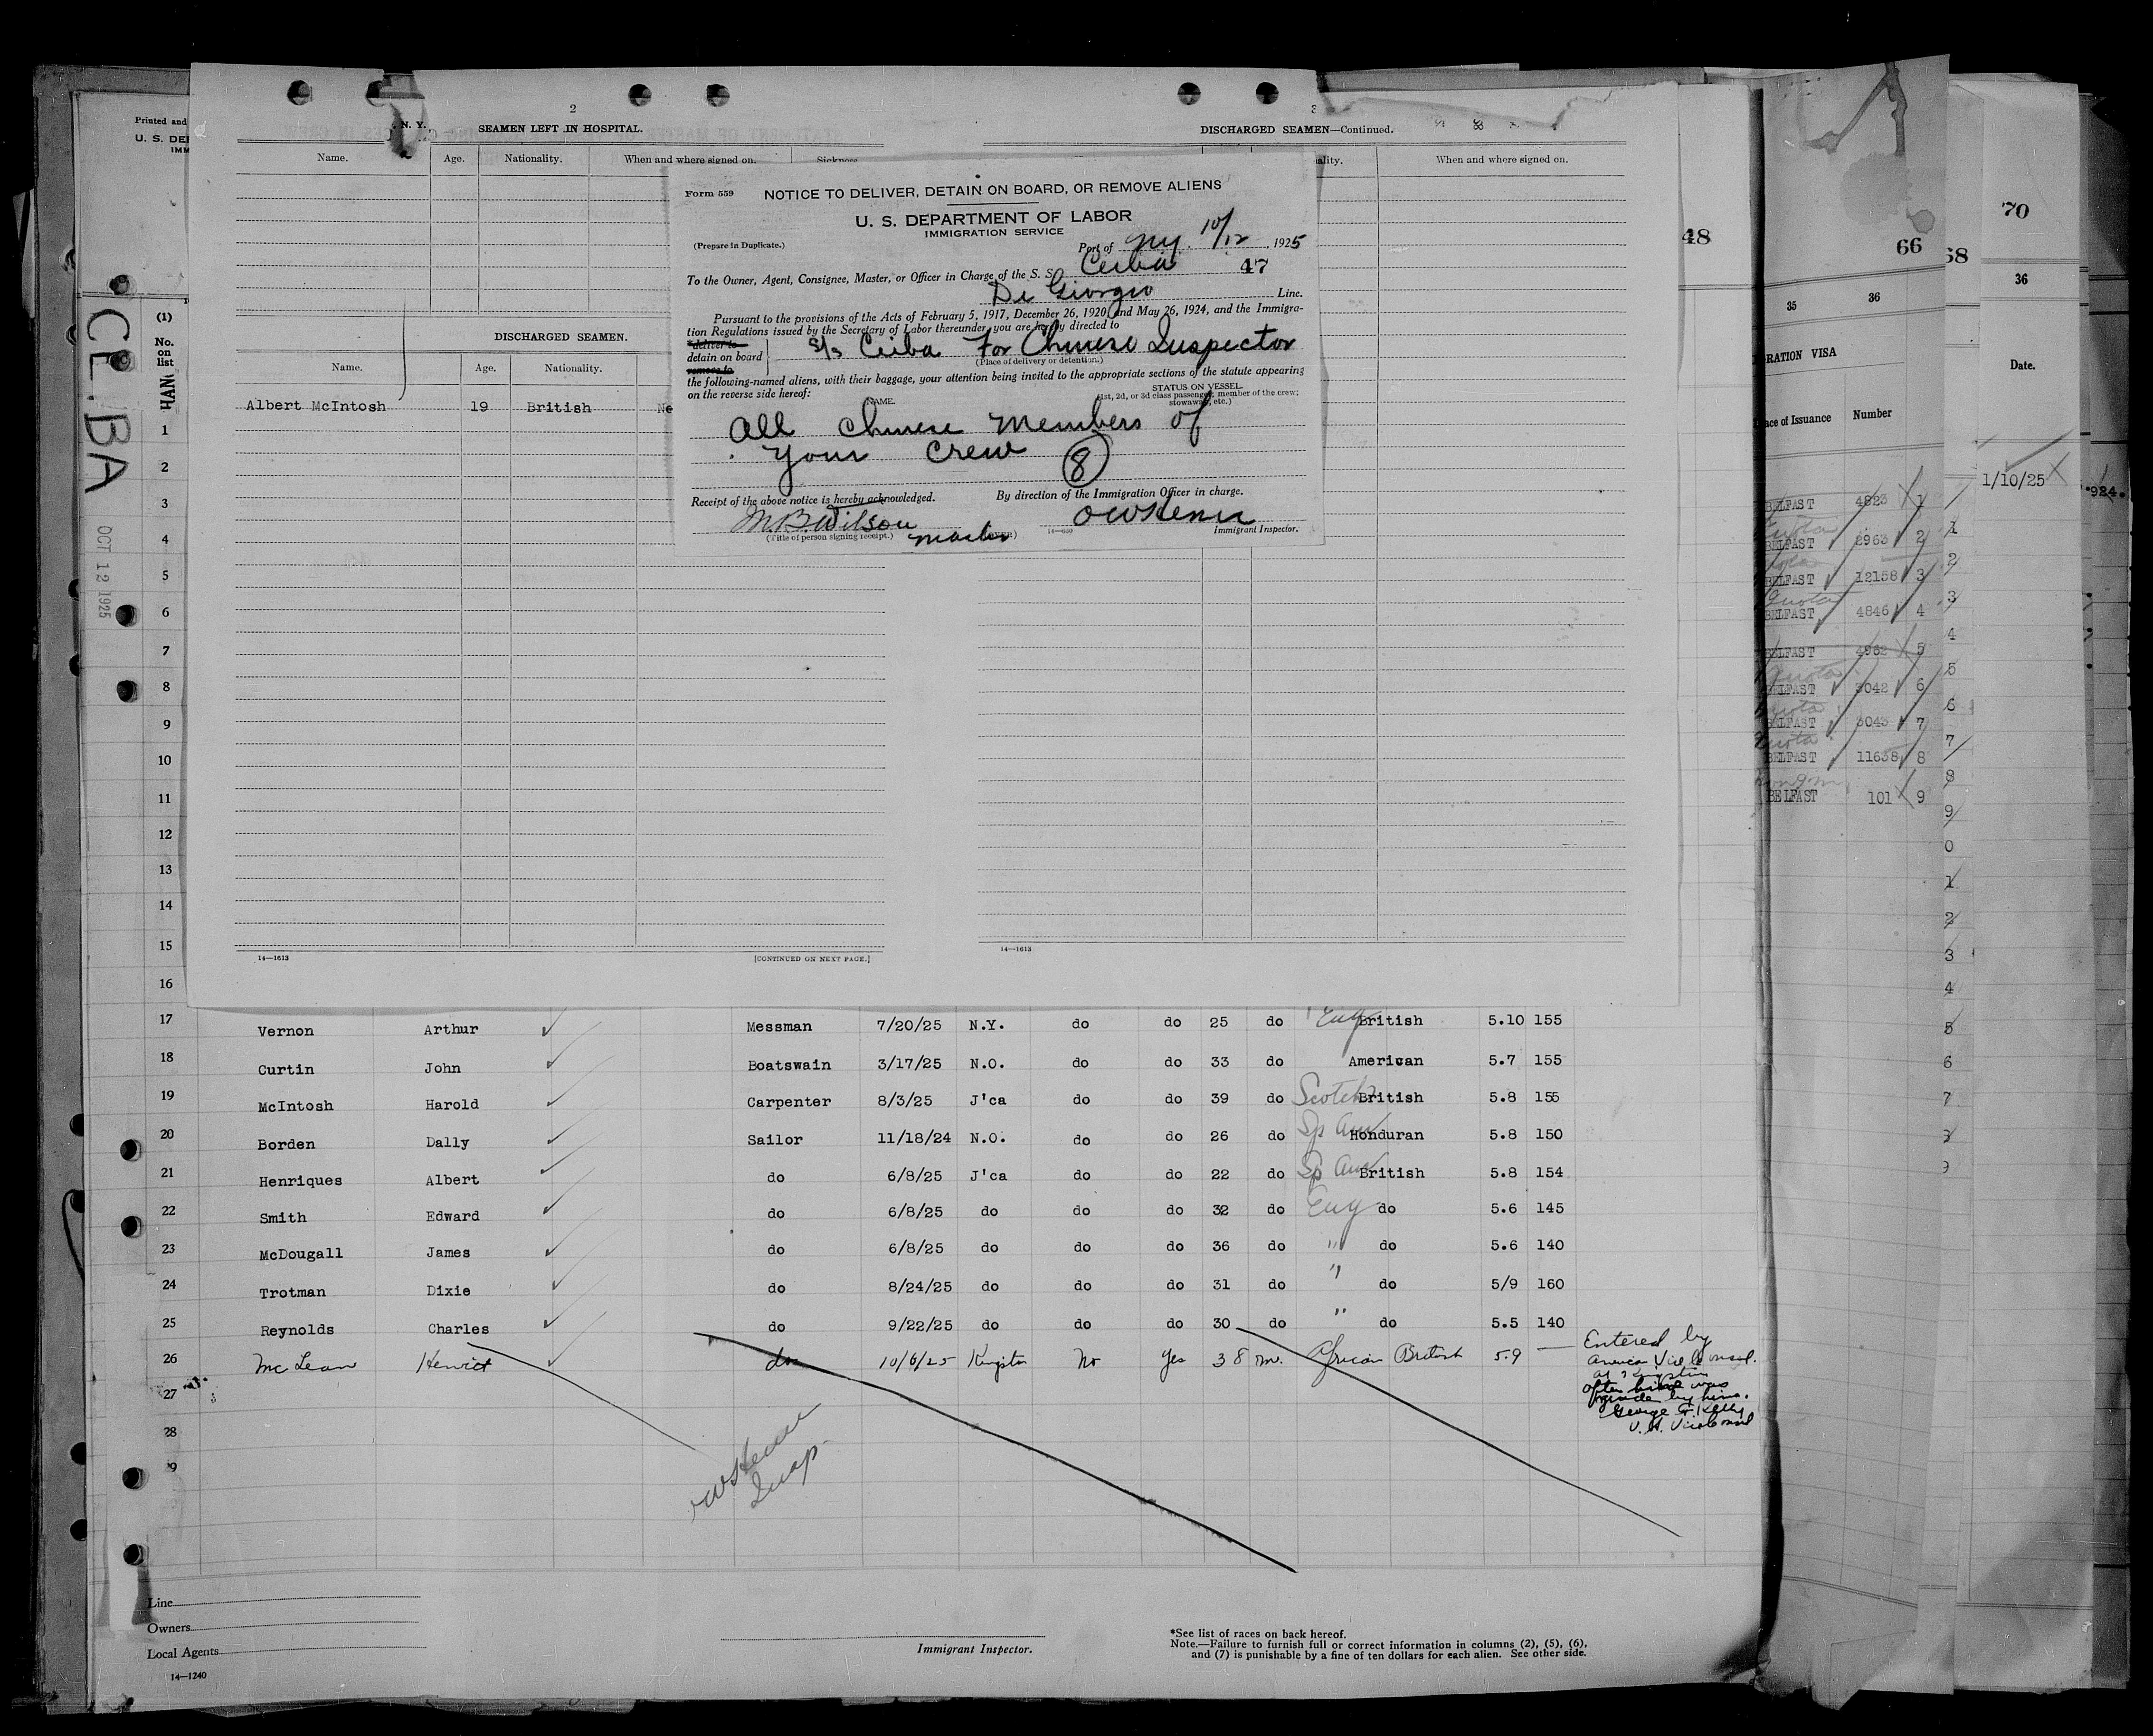 Printed and
U. S. DEP
IMM
CEIBA
OCT 12 1925
(1)
No.
on
list
2
N. Y.
SEAMEN LEFT IN HOSPITAL.
Name. Age. Nationality. When and where signed on. Sickness
DISCHARGED SEAMEN.
Name. Age. Nationality.
Albert McIntosh 19 British Ne
14—1613 [CONTINUED ON NEXT PAGE.]
3
DISCHARGED SEAMEN—Continued.
ality. When and where signed on.
14—1613
Form 559 NOTICE TO DELIVER, DETAIN ON BOARD, OR REMOVE ALIENS
U. S. DEPARTMENT OF LABOR
IMMIGRATION SERVICE
(Prepare in Duplicate.) Port of N.Y. 10/12, 1925
To the Owner, Agent, Consignee, Master, or Officer in Charge of the S. S. Ceiba 47
Di Giorgio Line.
Pursuant to the provisions of the Acts of February 5, 1917, December 26, 1920, and May 26, 1924, and the Immigra-
tion Regulations issued by the Secretary of Labor thereunder, you are hereby directed to
deliver to
detain on board S/S Ceiba For Chinese Inspector
remove to (Place of delivery or detention.)
the following-named aliens, with their baggage, your attention being invited to the appropriate sections of the statute appearing
on the reverse side hereof:
NAME. STATUS ON VESSEL
(1st, 2d, or 3d class passenger, member of the crew;
stowaway, etc.)
All Chinese members of
your crew 8
Receipt of the above notice is hereby acknowledged. By direction of the Immigration Officer in charge.
M. B. Wilson
(Title of person signing receipt.) Master (OVER) Immigrant Inspector.
1
2
3
4
5
6
7
8
9
10
11
12
13
14
15
16
17 Vernon Arthur Messman 7/20/25 N.Y. do do 25 do Eng British 5.10 155
18 Curtin John Boatswain 3/17/25 N.O. do do 33 do American 5.7 155
19 McIntosh Harold Carpenter 8/3/25 J'ca do do 39 do Scotch British 5.8 155
20 Borden Dally Sailor 11/18/24 N.O. do do 26 do Sp Am Honduran 5.8 150
21 Henriques Albert do 6/8/25 J'ca do do 22 do Sp Am British 5.8 154
22 Smith Edward do 6/8/25 do do do 32 do Eng do 5.6 145
23 McDougall James do 6/8/25 do do do 36 do " do 5.6 140
24 Trotman Dixie do 8/24/25 do do do 31 do " do 5/9 160
25 Reynolds Charles do 9/22/25 do do do 30 do " do 5.5 140
26 McLean do 10/6/25 Kingston No Yes 38 m. African British 5.9 —
27
28
9
Entered by
American Vice Consul.
at Kingston
after was
made by him.
George Kelly
U.S. Vice Consul
Insp.
Line
Owners
Local Agents
14—1240
Immigrant Inspector.
*See list of races on back hereof.
Note.—Failure to furnish full or correct information in columns (2), (5), (6),
and (7) is punishable by a fine of ten dollars for each alien. See other side.
48
66
68
70
35 36
GRATION VISA
ace of Issuance Number
BELFAST 4823 1
BELFAST 2963 2
BELFAST 12158 3
BELFAST 4846 4
BELFAST 4962 5
BELFAST 3042 6
BELFAST 3043 7
BELFAST 11638 8
BELFAST 101 9
36
Date.
1/10/25
924.